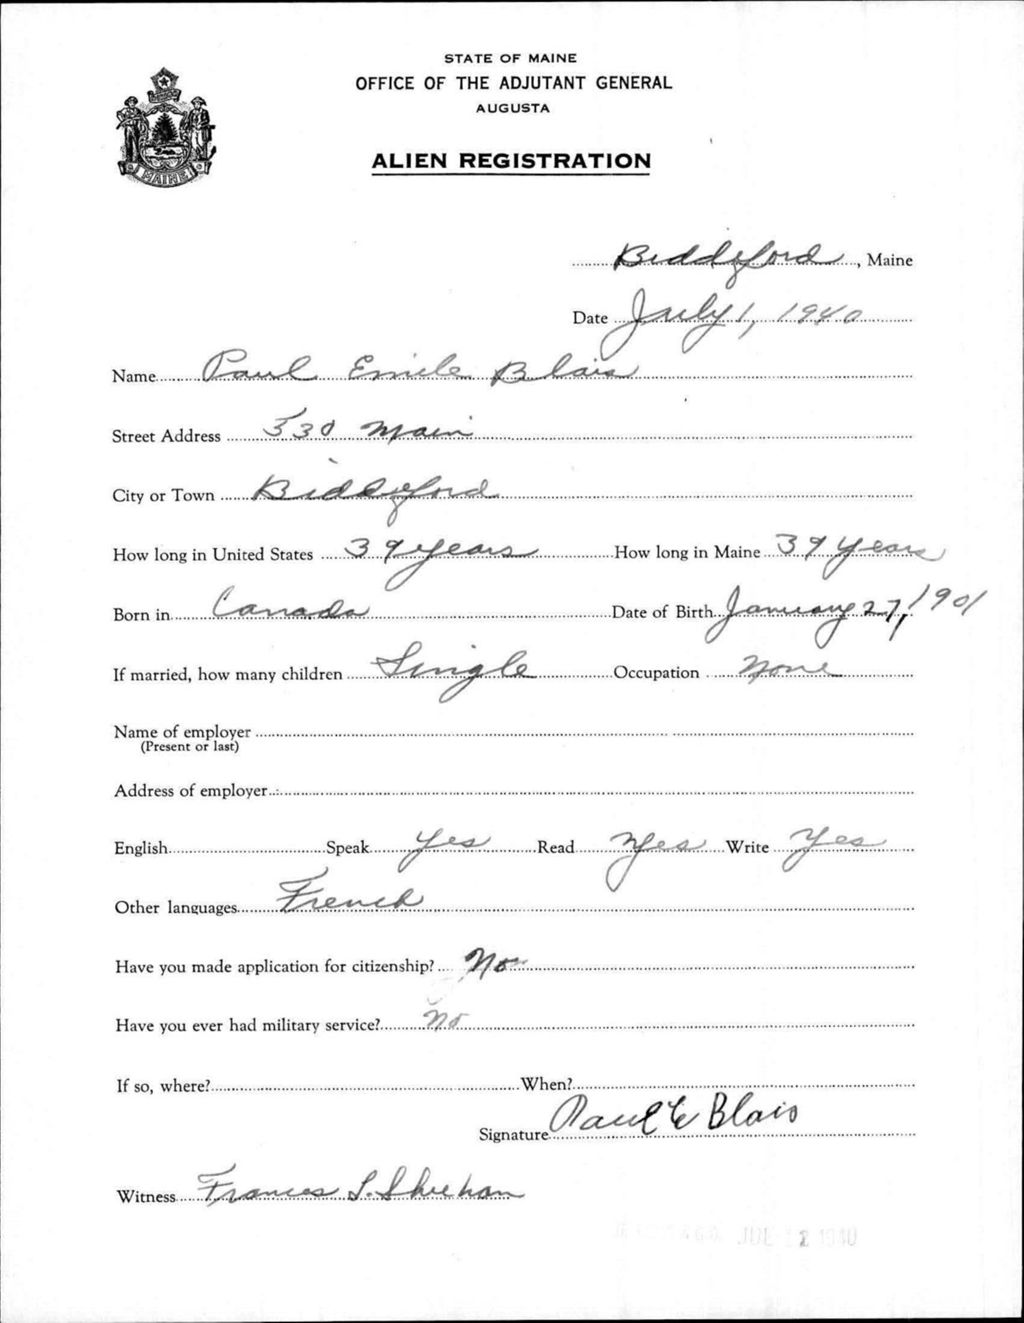 STATE OF MAINE
OFFICE OF THE ADJUTANT GENERAL
AUGUSTA
MAINE
ALIEN REGISTRATION
Biddeford, Maine
Date July 1, 1940
Name Paul Emile Blais
Street Address 330 Main
City or Town Biddeford
How long in United States 39 years How long in Maine 39 years
Born in Canada Date of Birth January 27, 1901
If married, how many children Single Occupation None
Name of employer
(Present or last)
Address of employer
English Speak Yes Read Yes Write Yes
Other languages French
Have you made application for citizenship? No
Have you ever had military service? No
If so, where? When?
Signature Paul E Blais
Witness Frances L. Sheehan
1940